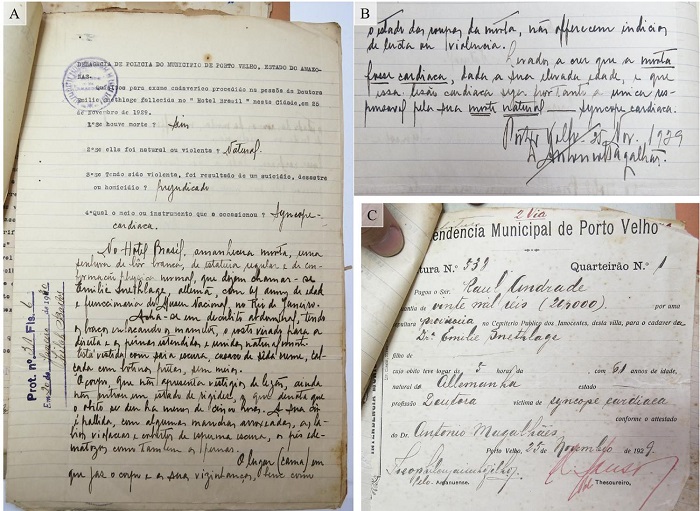 A
DELEGACIA DE POLICIA DO MUNICIPIO DE PORTO VELHO, ESTADO DO AMAZO-
NAS.
Quesitos para exame cadaverico procedido na pessôa da Doutora
Emilie Snethlage fallecida no " Hotel Brasil " nesta Cidade, em 25
de Novembro de 1929.
1ºSe houve morte ? Sim
2ºSe ella foi natural ou violenta ? Natural.
3ºSe Tendo sido violenta, foi resultado de um suicidio, desastre
ou homicidio ? Prejudicado
4ºQual o meio ou instrumento que a occasionou ? Syncope
cardiaca.
No Hotel Brasil, amanhecera morta, uma
senhora de côr branca, de estatura regular e de con-
formação physica normal, que dizem chamar-se
Emilie Snethlage, allemã, com 61 annos de edade
e funccionaria do Museu Nacional, no Rio de Janeiro.
Acha-se em decubito abdominal, tendo
os braços enlaçando as mammas, o rosto virado para a
direita e as pernas estendidas e unidas, natural
vestida com saia escura, casaco de seda
calçada com botinas pretas, sem meias.
O corpo, que não apresenta vestigios de lesão, ainda
não entrou em estado de rigidez, o que denota que
o obito se deu ha menos de cinco horas. A sua côr
é pallida, com algumas manchas arroxeadas, os la-
bios violaceos e cobertos de espuma escura, os pés ede-
matosos como tambem as pernas.
O lugar (cama) em
que jaz o corpo e as suas vizinhanças, bem como
Prot. nº Fls. 6
Em 20 de Janeiro de 1930
B
o estado das roupas da morta, não offerecem indicios
de lucta ou violencia.
Levado a crer que a morta
fosse cardiaca, dada a sua elevada edade, e que
essa lesão cardiaca seja portanto a unica res-
ponsavel pela sua morte natural — syncope cardiaca.
Porto Velho, 25 Nov. 1929
Antonio Magalhães
C
2 Via
endencia Municipal de Porto Velho
tura N.º 538 Quarteirão N.º 1
Pagou o Snr. Raul Andrade
antia de vinte mil réis (20$000) por uma
ultura provisoria no Cemiterio Publico dos Innocentes, desta villa, para o cadaver de
Dr.ª Emilie Snethlage
filho de
cujo obito teve logar ás 5 horas da com 61 annos de idade,
natural de Allemanha estado
profissão Doutora victima de syncope cardiaca
conforme o attestado
do Dr. Antonio Magalhães
Porto Velho, 25 de Novembro de 1929.
Pelo Amanuense. Thesoureiro.